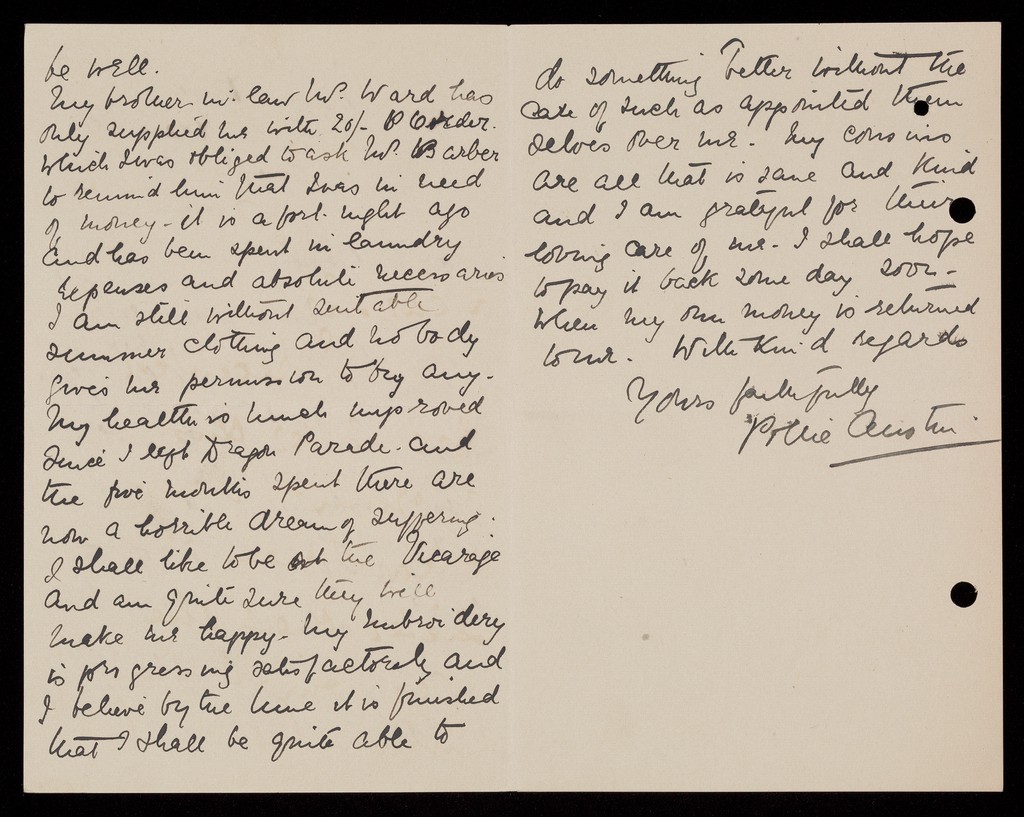 be well.
My brother-in-law Mr. Ward has
only supplied me with 20/- P Order.
which I was obliged to ask Mr. Barber
to remind him that I was in need
of money - it is a fort-night ago
and has been spent in laundry
expenses and absolute necessaries
I am still without suitable
summer clothing and nobody
gives me permission to buy any.
My health is much improved
since I left Dragon Parade. and
the five months spent there are
now a horrible dream of suffering.
I shall like to be at the Vicarage
and am quite sure they will
make me happy - My Embroidery
is progressing satisfactorily and
I believe by the time it is finished
that I shall be quite able to
do something better without the
care of such as appointed them
selves over me - My cousins
are all that is sane and kind
and I am grateful for their
loving care of me - I shall hope
to pay it back some day soon -
when my own money is returned
to me. With kind regards
Yours faithfully
Pollie Austin